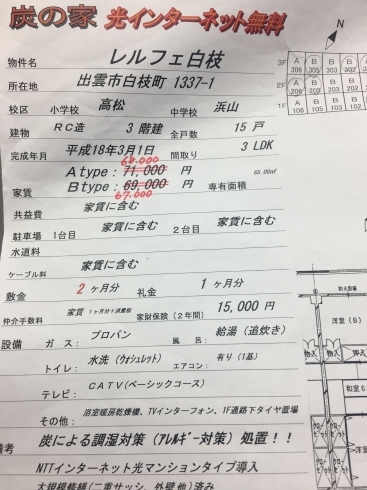 炭の家 光インターネット無料
N
物件名 レルフェ白枝
所在地 出雲市白枝町 1337-1
校区 小学校 高松 中学校 浜山
建物 RC造 3 階建 全戸数 15 戸
完成年月 平成18年3月1日 間取り 3 LDK
68.000
家賃 A type : 71,000 円 65.00㎡
B type : 69,000 円 専有面積
67.000
共益費 家賃に含む
駐車場 1台目 家賃に含む 2台目 家賃に含む
水道料
ケーブル料 家賃に含む
敷金 2 ヶ月分 礼金 1 ヶ月分
仲介手数料 家賃 1ヶ月分+消費税 家財保険(2年間) 15,000 円
設備 ガ ス: プロパン 風 呂: 給湯(追炊き)
トイレ: 水洗(ウォシュレット) エアコン: 有り(1基)
テレビ: CATV(ベーシックコース)
その他: 浴室暖房乾燥機、TVインターフォン、1F通路下タイヤ置場
備考 炭による調湿対策(アレルギー対策)処置!!
NTTインターネット光マンションタイプ導入
大規模修繕(二重サッシ、外壁他)済み
3F A 306 B 305 B 303
2F A 206
1F A 106 B 105 B 103
洋室(B)
物入 物入
洋室
和室6
クローゼット クローゼット